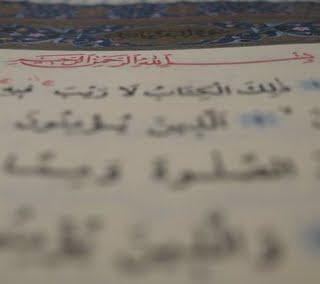 بِسْمِ اللهِ الرَّحْمٰنِ الرَّحِيمِ
ذٰلِكَ الْكِتَابُ لَا رَيْبَ فِيهِ
الَّذِينَ يُؤْمِنُونَ
الصَّلٰوةَ وَمِمَّا
وَالَّذِينَ يُؤْمِنُونَ